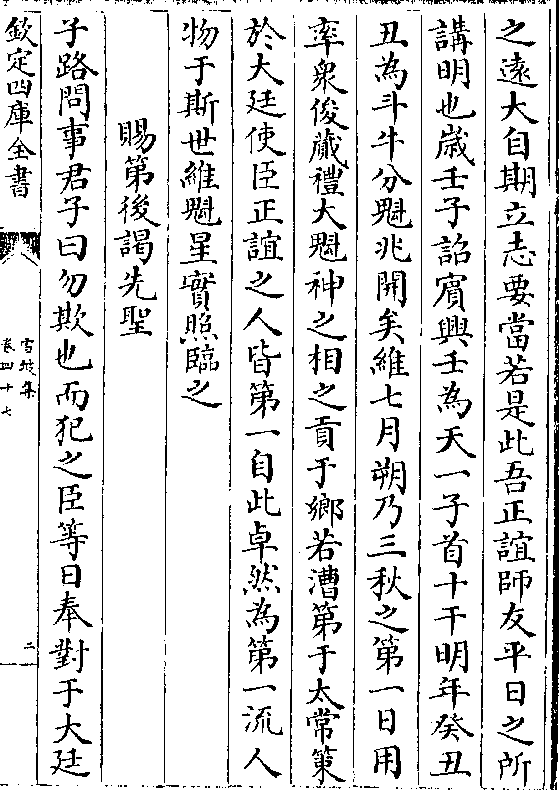 之遠大自期立志要當若是此吾正誼師友平日之所
講明也歲壬子詔賓興壬為天一子首十干明年癸丑
丑為斗牛分魁兆開矣維七月朔乃三秋之第一日用
率衆俊蕆禮大魁神之相之貢于鄉若漕第于太常策
於大廷使臣正誼之人皆第一自此卓然為第一流人
物于斯世維魁星實照臨之
賜第後謁先聖
子路問事君子曰勿欺也而犯之臣等日奉對于大廷
欽定四庫全書
雪坡集
卷四十七
二